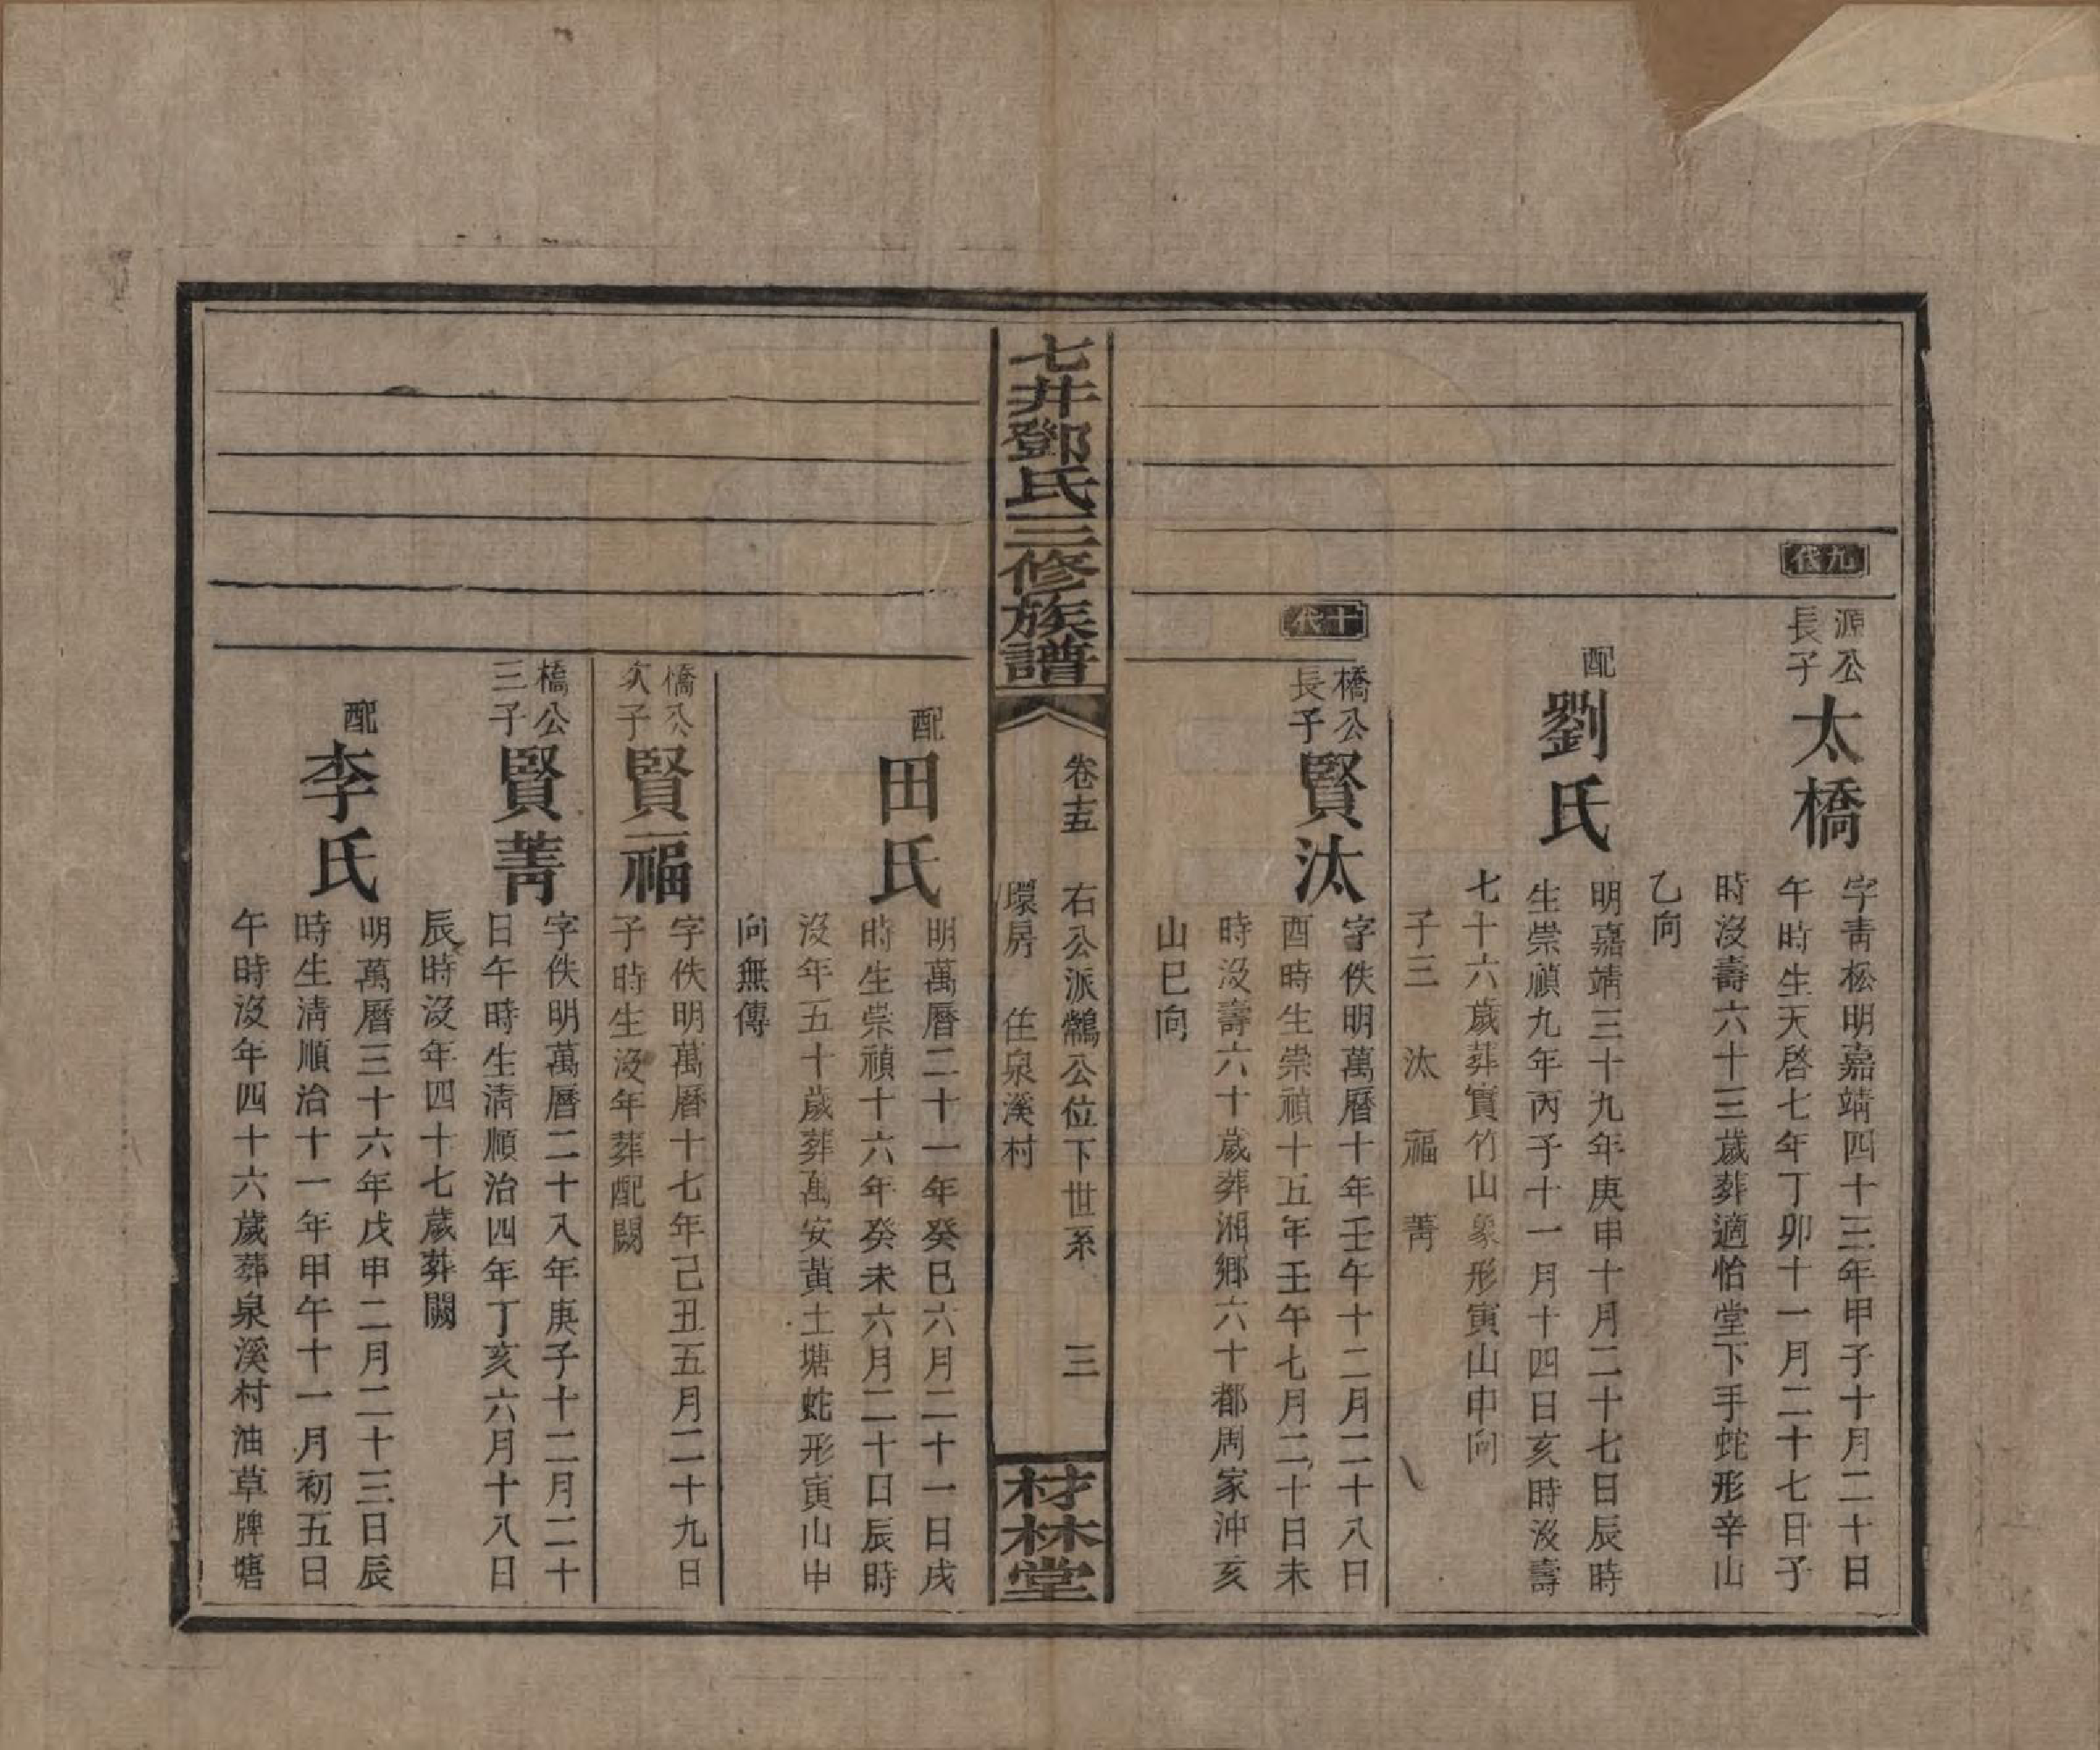 九代
源公
長子
太橋
字靑松明嘉靖四十三年甲子十月二十日
午時生天啓七年丁卯十一月二十七日子
時沒壽六十三歲葬適怡堂下手蛇形辛山
乙向
配
劉氏
明嘉靖三十九年庚申十月二十七日辰時
生崇禎九年丙子十一月十四日亥時沒壽
七十六歲葬實竹山象形寅山申向
子三 汰 福 菁
十代
橋公
長子
賢汰
字佚明萬曆十年壬午十二月二十八日
酉時生崇禎十五年壬午七月二十日未
時沒壽六十歲葬湘鄉六十都周家沖亥
山巳向
七井鄧氏三修族譜
卷十五 右公派鷩公位下世系 三
環房 住泉溪村
材林堂
配
田氏
明萬曆二十一年癸巳六月二十一日戌
時生崇禎十六年癸未六月二十日辰時
沒年五十歲葬萬安黃土塘蛇形寅山申
向無傳
橋公
次子
賢福
字佚明萬曆十七年己丑五月二十九日
子時生沒年葬配闕
橋公
三子
賢菁
字佚明萬曆二十八年庚子十二月二十
日午時生淸順治四年丁亥六月十八日
辰時沒年四十七歲葬闕
配
李氏
明萬曆三十六年戊申二月二十三日辰
時生淸順治十一年甲午十一月初五日
午時沒年四十六歲葬泉溪村油草牌塘